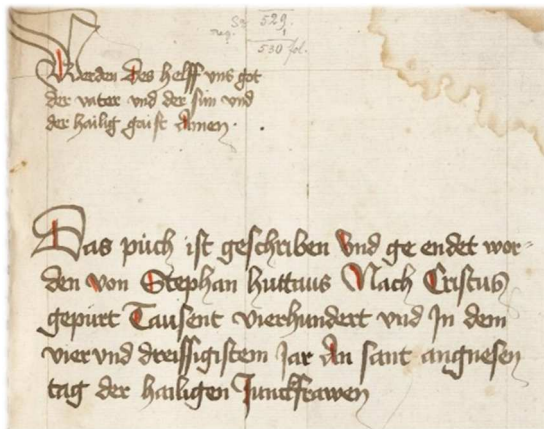 529
530 fol.
Werden Des helff vns got
der vater vnd der sun vnd
der hailig gaist Amen.
Das püch ist geschriben Vnd ge endet wor-
den von Stephan huttaus Nach Cristus
gepurt Tausent vierhundert vnd In dem
vier vnd dreissigistem Jar An sant angnesen
tag der hailigen Junckfrawen